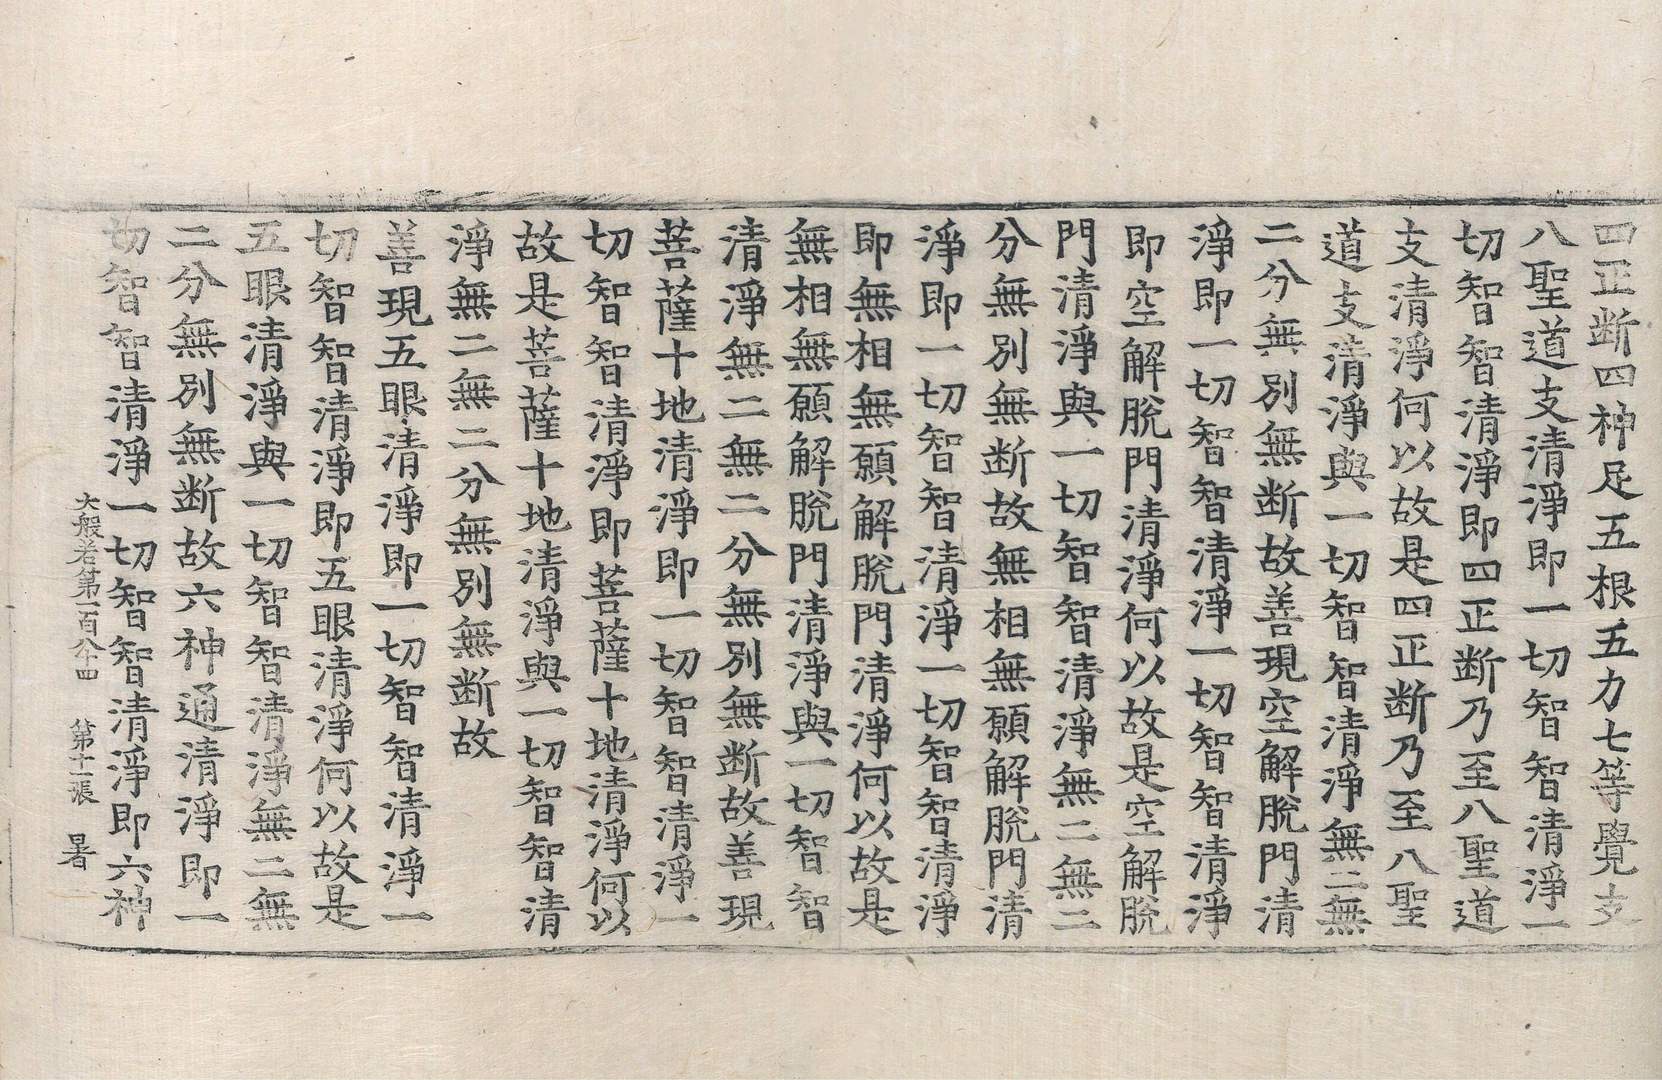 四正断四神足五根五力七等覺支
八聖道支清淨即一切智智清淨一
切智智清淨即四正断乃至八聖道
支清淨何以故是四正断乃至八聖
道支清淨與一切智智清淨無二無
二分無別無断故善現空解脫門清
淨即一切智智清淨一切智智清淨
即空解脫門清淨何以故是空解脫
門清淨與一切智智清淨無二無二
分無別無断故無相無願解脫門清
淨即一切智智清淨一切智智清淨
即無相無願解脫門清淨何以故是
無相無願解脫門清淨與一切智智
清淨無二無二分無別無断故善現
菩薩十地清淨即一切智智清淨一
切智智清淨即菩薩十地清淨何以
故是菩薩十地清淨與一切智智清
淨無二無二分無別無断故
善現五眼清淨即一切智智清淨一
切智智清淨即五眼清淨何以故是
五眼清淨與一切智智清淨無二無
二分無別無断故六神通清淨即一
切智智清淨一切智智清淨即六神
大般若第一百八十四 第十一張 暑